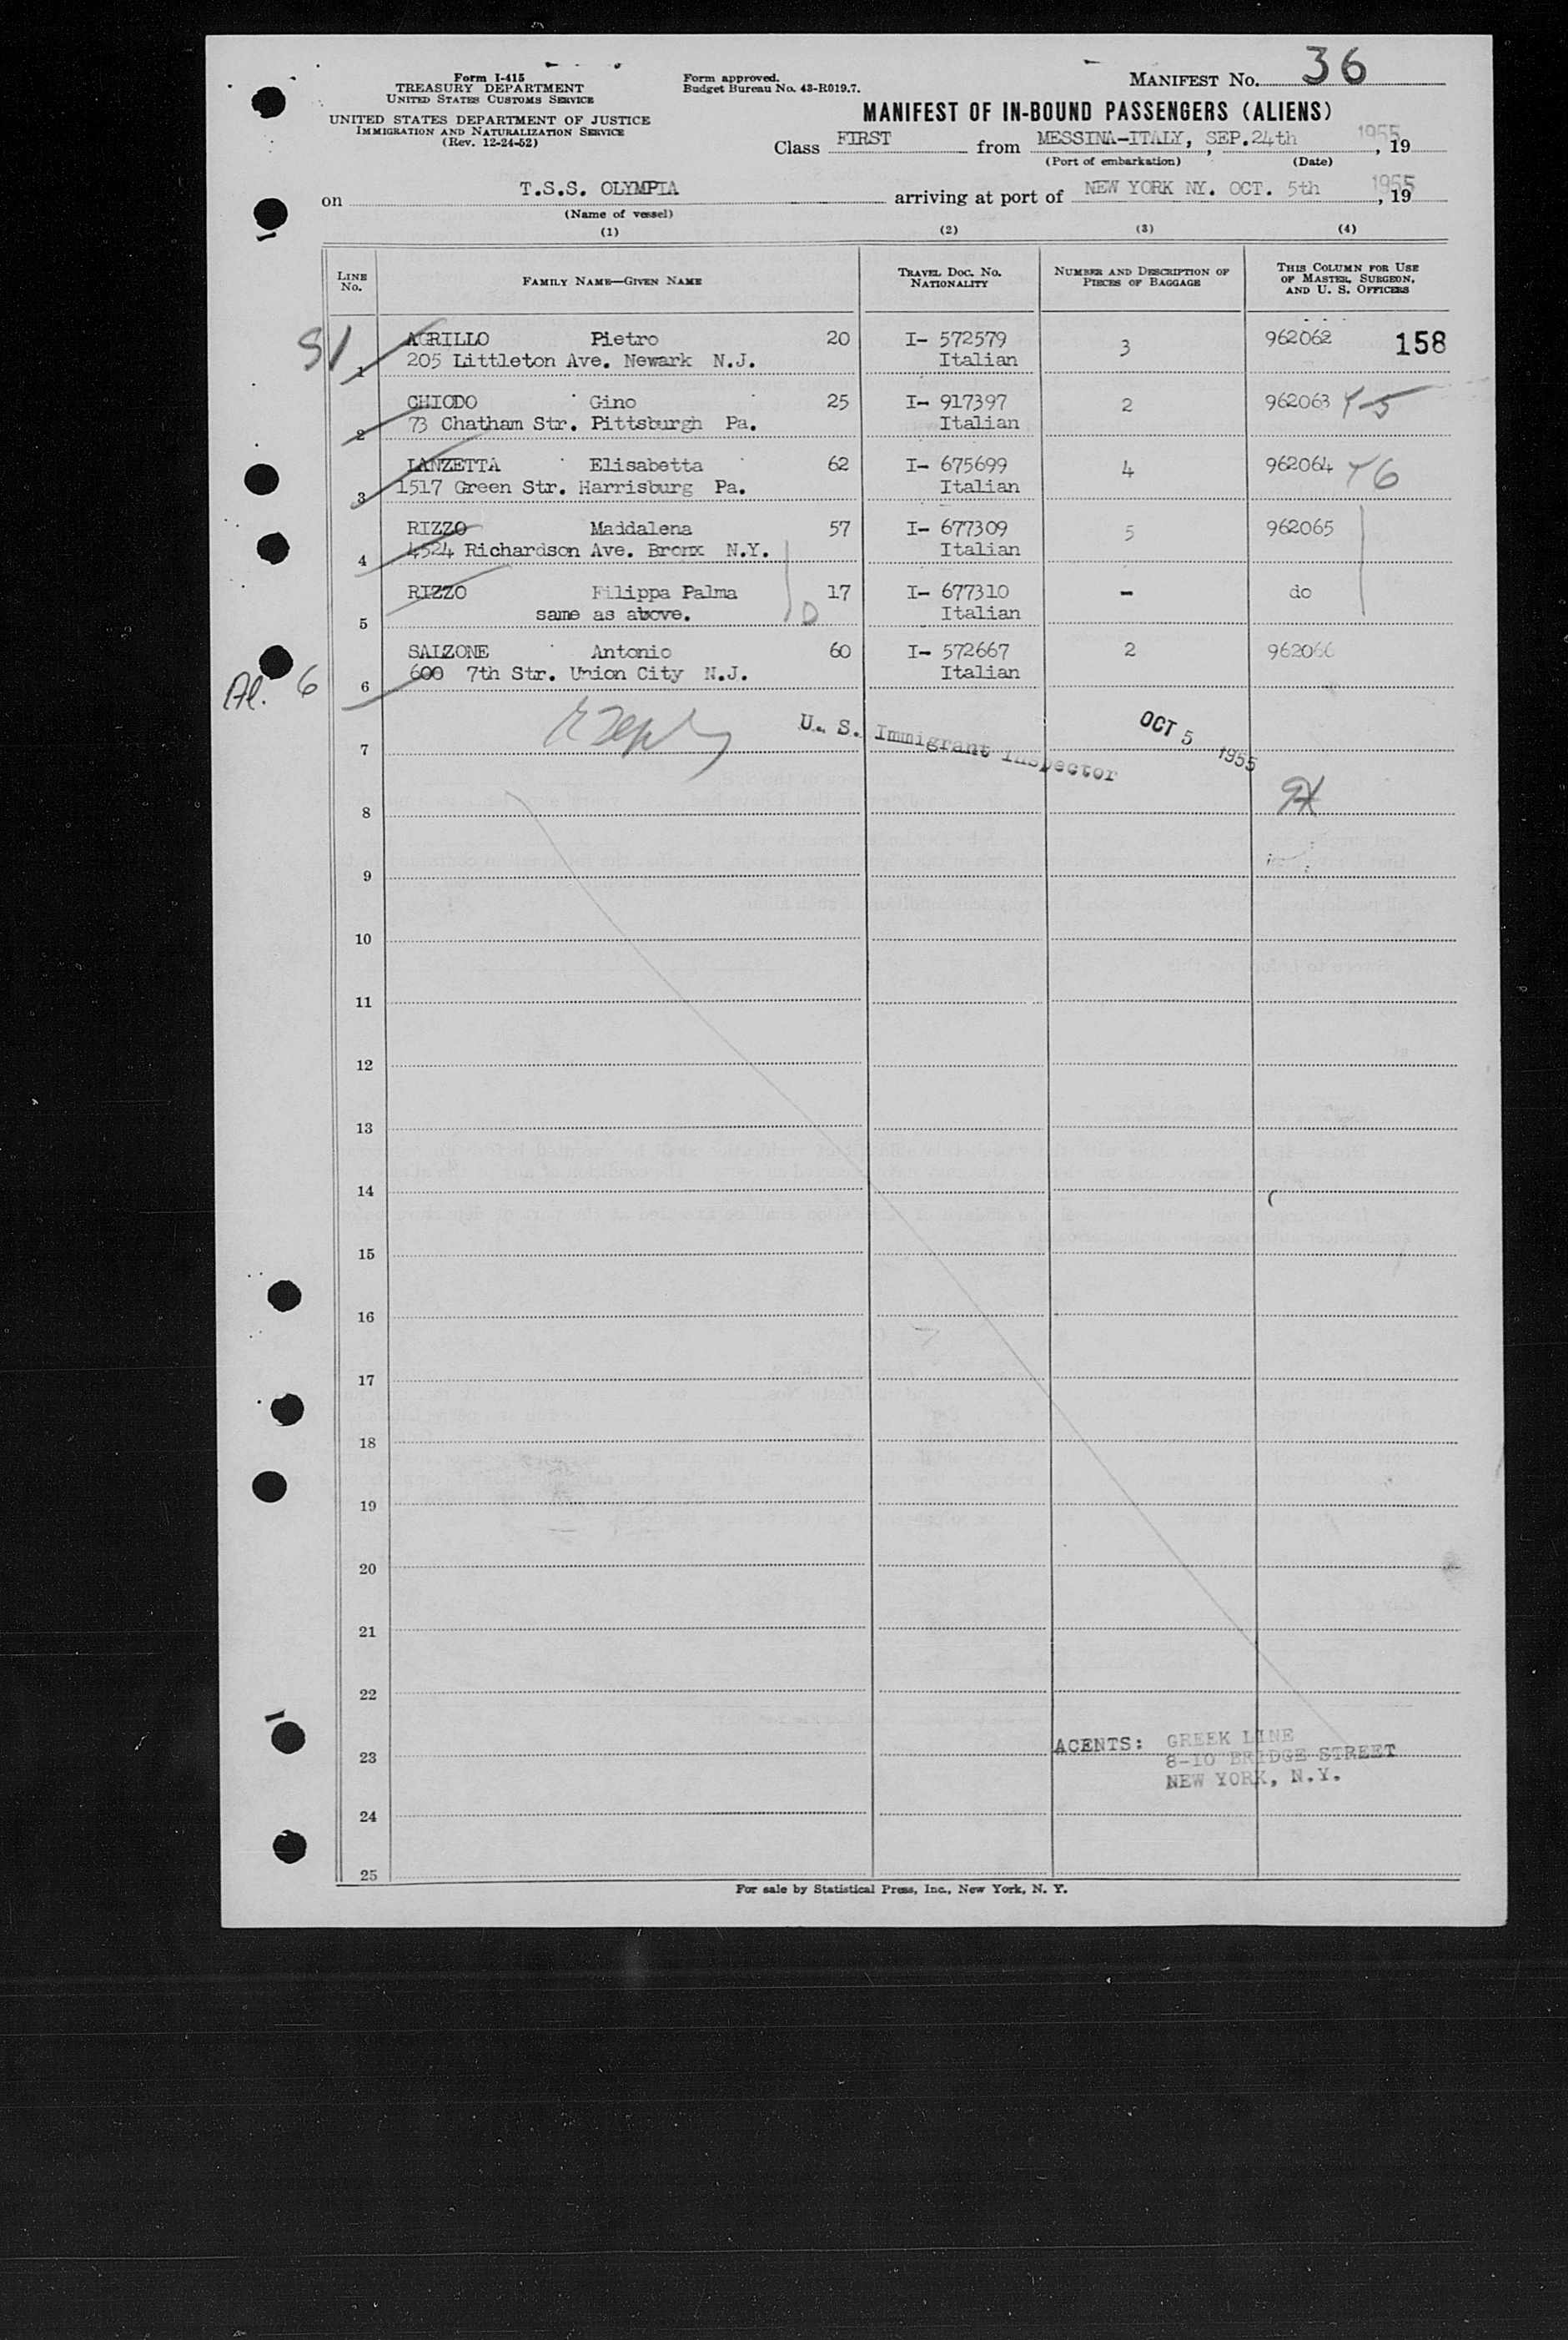 Form I-415
TREASURY DEPARTMENT
UNITED STATES CUSTOMS SERVICE
UNITED STATES DEPARTMENT OF JUSTICE
IMMIGRATION AND NATURALIZATION SERVICE
(Rev. 12-24-52)
Form approved.
Budget Bureau No. 43-R019.7.
MANIFEST NO. 36
MANIFEST OF IN-BOUND PASSENGERS (ALIENS)
Class FIRST from MESSINA-ITALY, SEP.24th 1955, 19
(Port of embarkation) (Date)
on T.S.S. OLYMPIA arriving at port of NEW YORK NY. OCT. 5th 1955, 19
(Name of vessel)
(1) (2) (3) (4)
LINE No. FAMILY NAME—GIVEN NAME TRAVEL DOC. NO. NATIONALITY NUMBER AND DESCRIPTION OF PIECES OF BAGGAGE THIS COLUMN FOR USE OF MASTER, SURGEON, AND U. S. OFFICERS
S1
AGRILLO Pietro 20 I- 572579 3 962062 158
1 205 Littleton Ave. Newark N.J. Italian
CHIODO Gino 25 I- 917397 2 962063
2 73 Chatham Str. Pittsburgh Pa. Italian
LANZETTA Elisabetta 62 I- 675699 4 962064
3 1517 Green Str. Harrisburg Pa. Italian
RIZZO Maddalena 57 I- 677309 5 962065
4 4524 Richardson Ave. Bronx N.Y. Italian
RIZZO Filippa Palma 17 I- 677310 - do
5 same as above. D Italian
SALZONE Antonio 60 I- 572667 2 962066
Al. 6 6 600 7th Str. Union City N.J. Italian
7 U. S. Immigrant Inspector OCT 5 1955
8
9
10
11
12
13
14
15
16
17
18
19
20
21
22
23 AGENTS: GREEK LINE
8-10 BRIDGE STREET
NEW YORK, N.Y.
24
25
For sale by Statistical Press, Inc., New York, N. Y.